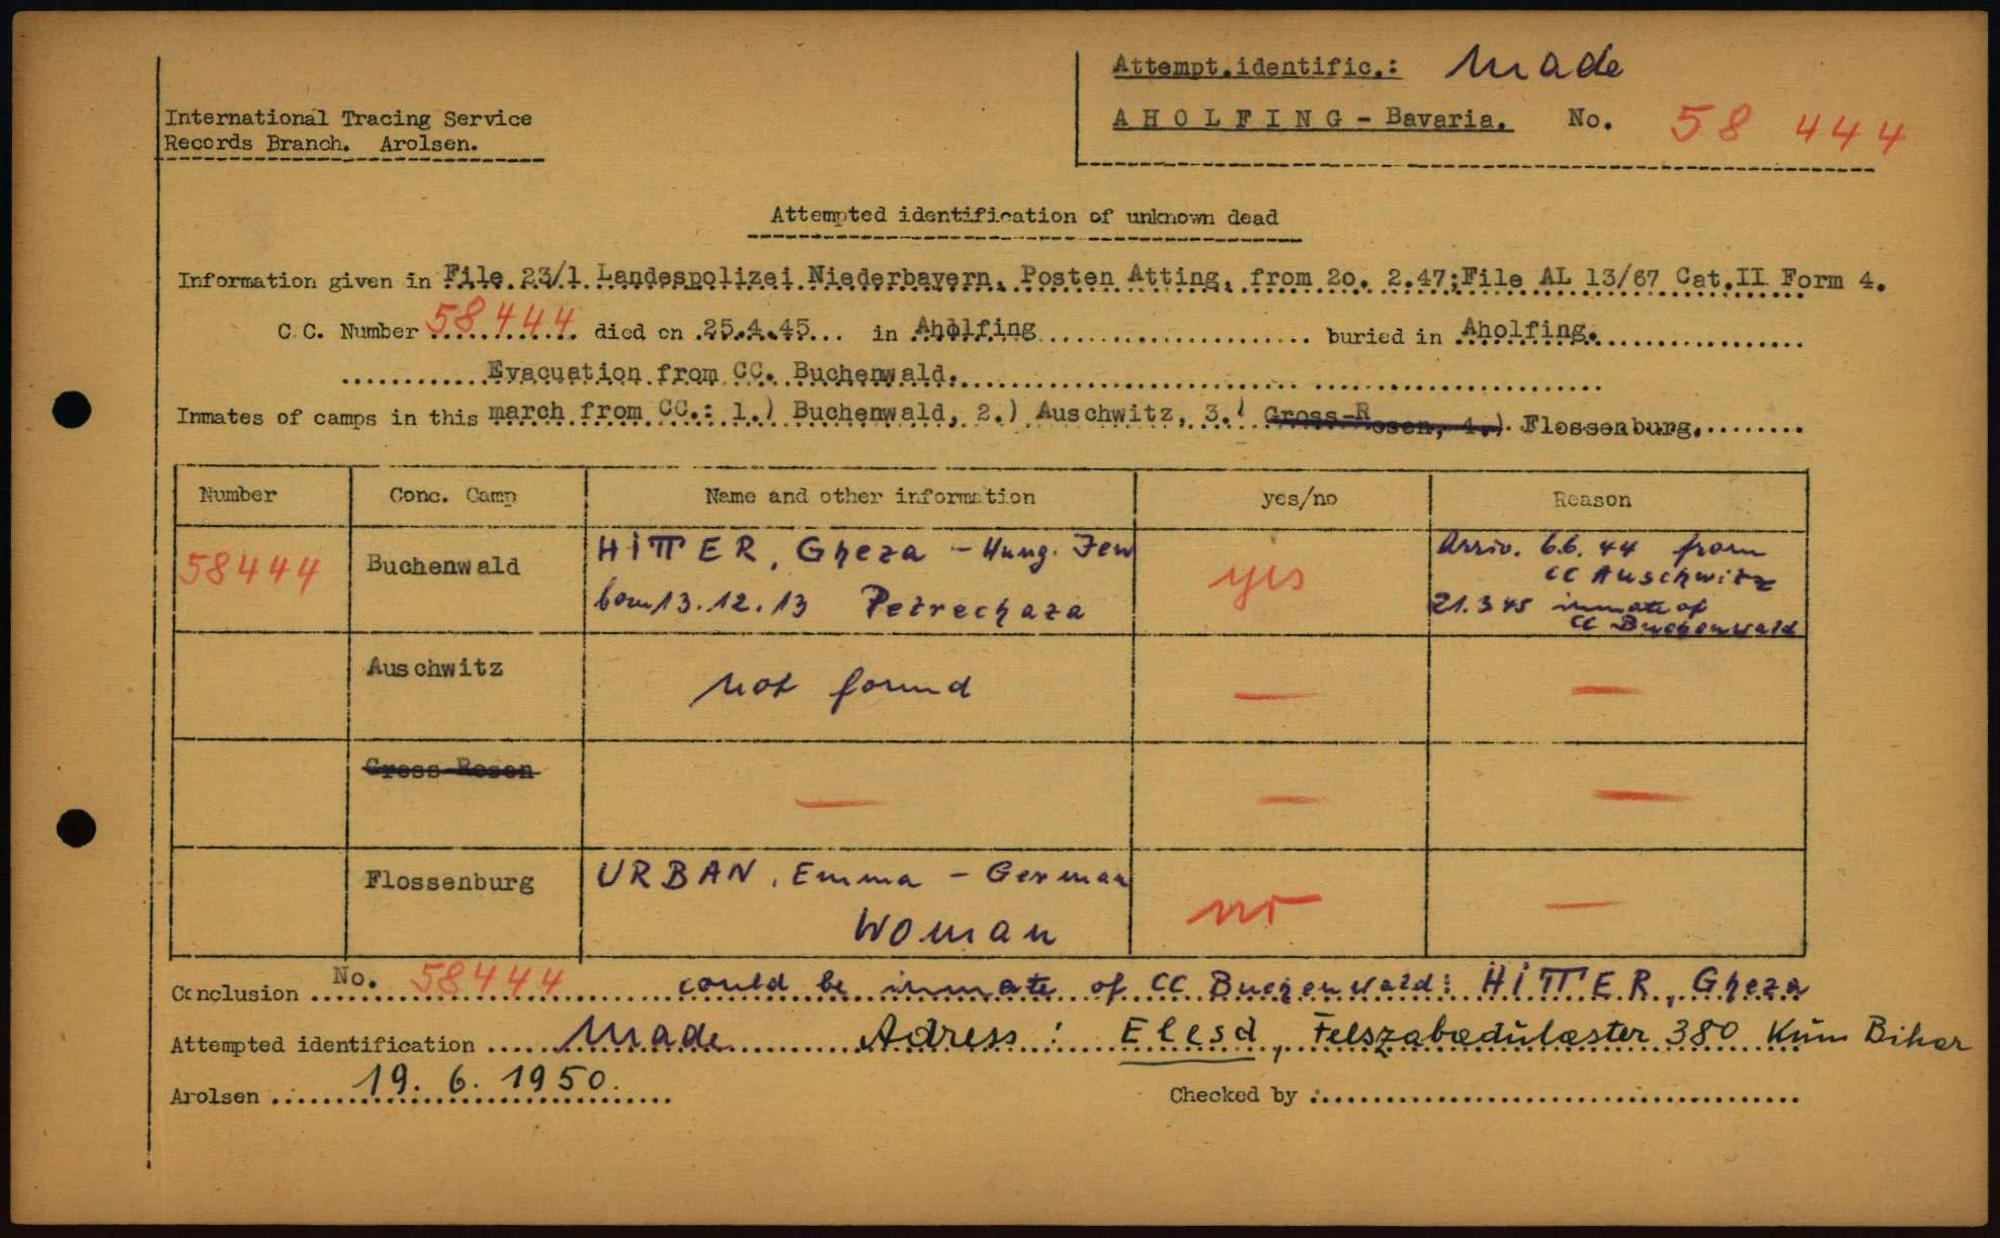 Attempt.identific.: Made
International Tracing Service
AHOLFING - Bavaria. No. 58 444
Records Branch. Arolsen.
Attempted identification of unknown dead
Information given in File 23/1 Landespolizei Niederbayern, Posten Atting, from 20. 2.47; File AL 13/67 Cat.II Form 4.
C.C. Number 58444 died on 25.4.45 in Aholfing buried in Aholfing.
Evacuation from CC. Buchenwald.
Inmates of camps in this march from CC.: 1.) Buchenwald, 2.) Auschwitz, 3.) Gross-Rosen, 4.) Flossenburg.
Number Conc. Camp Name and other information yes/no Reason
58444 Buchenwald HITTER, Gheza - Hung. Jew yes Arriv. 6.6.44 from
CC Auschwitz
born 13.12.13 Petrechaza 21.3 45 inmate of
CC Buchenwald
Auschwitz not found — —
Gross-Rosen — — —
Flossenburg URBAN, Emma - German no —
Woman
Conclusion No. 58444 could be inmate of CC Buchenwald: HITTER, Gheza
Attempted identification Made Adress: Elesd, Felszabadulaster 380 Kum Bihar
Arolsen 19. 6. 1950. Checked by